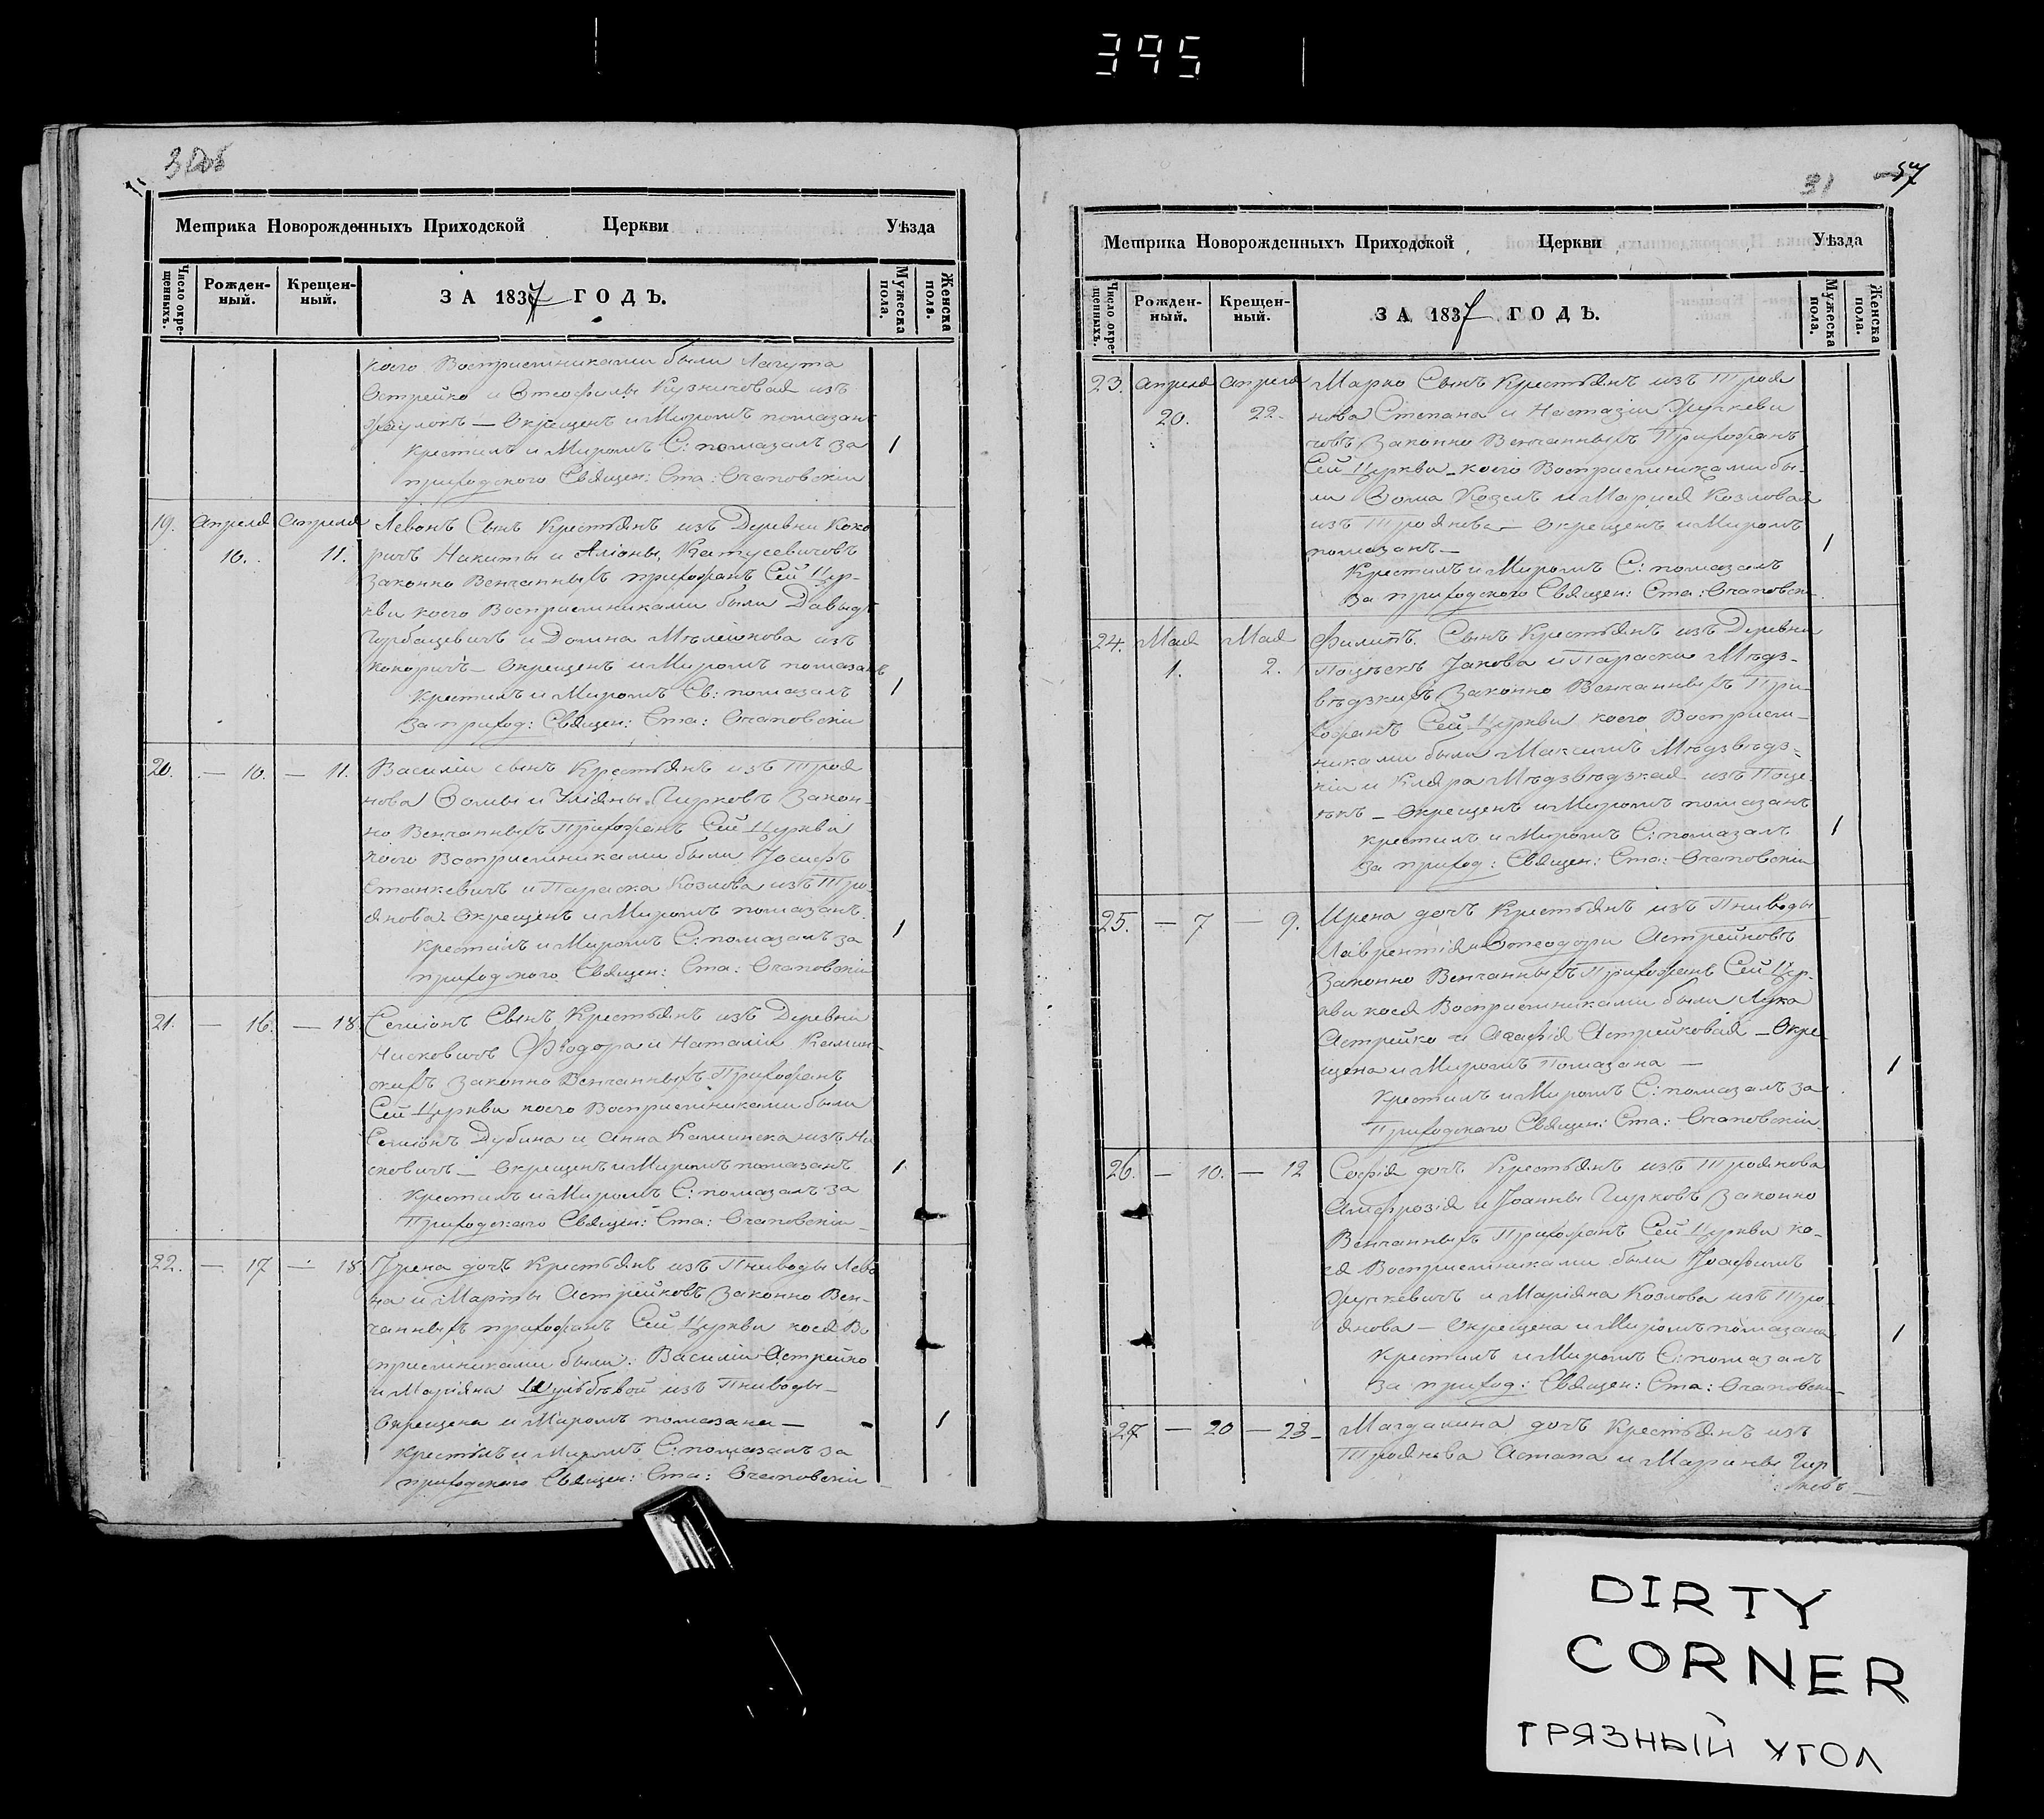 395
30об
Метрика Новорожденныхъ Приходской Церкви Уѣзда
Число окрещенныхъ.
Рожденный.
Крещенный.
ЗА 1837 ГОДЪ.
Мужеска пола.
Женска пола.
коего Восприемниками были
Острейко и Кузничовая изъ
— Окрещенъ и Миромъ помазанъ
Крестилъ и Миромъ С: помазалъ за 1
приходского Священ: Ста: Очаповскій
19. Апреля Апреля Левонъ Сынъ Крестьянъ изъ Деревни Коко
10. 11. ричъ Никиты и Алiоны
Законно Венчанныхъ прихожанъ Сей Цер-
кви коего Восприемниками были Давыдъ
Горбацевичъ и Домна изъ
Кокоричъ — Окрещенъ и Миромъ помазанъ
Крестилъ и Миромъ Св: помазалъ 1
За приход: Священ: Ста: Очаповскій
20. — 10. — 11. Василiи сынъ Крестьянъ изъ Троя
нова Фомы и Улiяны Гирковъ Закон-
но Венчанныхъ Прихожанъ Сей Церкви
коего Восприемниками были Iосифъ
Станкевичъ и Параска Козлова изъ Тро-
янова — Окрещенъ и Миромъ помазанъ.
Крестилъ и Миромъ С: помазалъ за 1
приходского Священ: Ста: Очаповскій
21. — 16. — 18. Семiонъ Сынъ Крестьянъ изъ Деревни
Нисковичъ Фiодора и Наталiи Камин-
скихъ Законно Венчанныхъ Прихожанъ
Сей Церкви коего Восприемниками были
Семiонъ Дубина и Анна Каминска изъ Ни
сковичъ — Окрещенъ и Миромъ помазанъ 1.
Крестилъ и Миромъ С: помазалъ за
Приходскаго Священ: Ста: Очаповскiи
22. — 17 — 18. Iрена дочь Крестьянъ изъ Пниводы Лево
на и Марты Астрейковъ Законно Вен-
чанныхъ прихожанъ Сей Церкви коея Во
приемниками были: Василiи Астрейко
и Марiяна изъ Пниводы —
Окрещена и Миромъ помазана — 1
Крестилъ и Миромъ С: помазалъ за
приходского Священ: Ста: Очаповскiи
31 57
Метрика Новорожденныхъ Приходской Церкви Уѣзда
Число окрещенныхъ.
Рожденный.
Крещенный.
ЗА 1837 ГОДЪ.
Мужеска пола.
Женска пола.
23. Апреля Апреля Марко Сынъ Крестьянъ изъ Троя
20. 22. нова Степана и Настазiи
Законно Венчанныхъ Прихожанъ
Сей Церкви — коего Восприемниками бы-
ли Фома Козелъ и Мария Козловая
изъ Троянова — Окрещенъ и Миромъ
помазанъ — 1
Крестилъ и Миромъ С: помазалъ
За приходского Священ: Ста: Очаповски
24. Мая Мая Филипъ Сынъ Крестьянъ изъ Деревни
1. 2. Iакова и Параски Мѣдз-
вѣдзкихъ Законно Венчанныхъ При-
хожанъ Сей Церкви коего Восприем-
никами были Максимъ Мѣдзвѣдз-
кiи и Кляра Мѣдзвѣдзкая изъ
— Окрещенъ и Миромъ помазанъ
Крестилъ и Миромъ С: помазалъ 1
За приход: Священ: Ста: Очаповскiи
25. — 7 — 9. Ирена дочь Крестьянъ изъ Пниводы
Лаврентiя и Астрейковъ
Законно Венчанныхъ Прихожанъ Сей Цер-
кви коея Восприемниками были Лука
Астрейко и Агафiя Астрейковая — Окре-
щена и Миромъ Помазана — 1
Крестилъ и Миромъ С: помазалъ за
Приходскаго Священ: Ста: Очаповскiи.
26. — 10. — 12 Софiя дочь Крестьянъ изъ Троянова
Амфрозiя и Iоанны Гирковъ Законно
Венчанныхъ Прихожанъ Сей Церкви ко-
ея Восприемниками были
и Марiяна Козлова изъ Тро-
янова — Окрещена и Миромъ помазана 1
Крестилъ и Миромъ С: помазалъ
За приход: Священ: Ста: Очаповски
27 — 20 — 23 — Магдалина дочь Крестьянъ изъ
Троянова Астапа и Марины Гир
ковъ —
DIRTY
CORNER
ГРЯЗНЫЙ УГОЛ